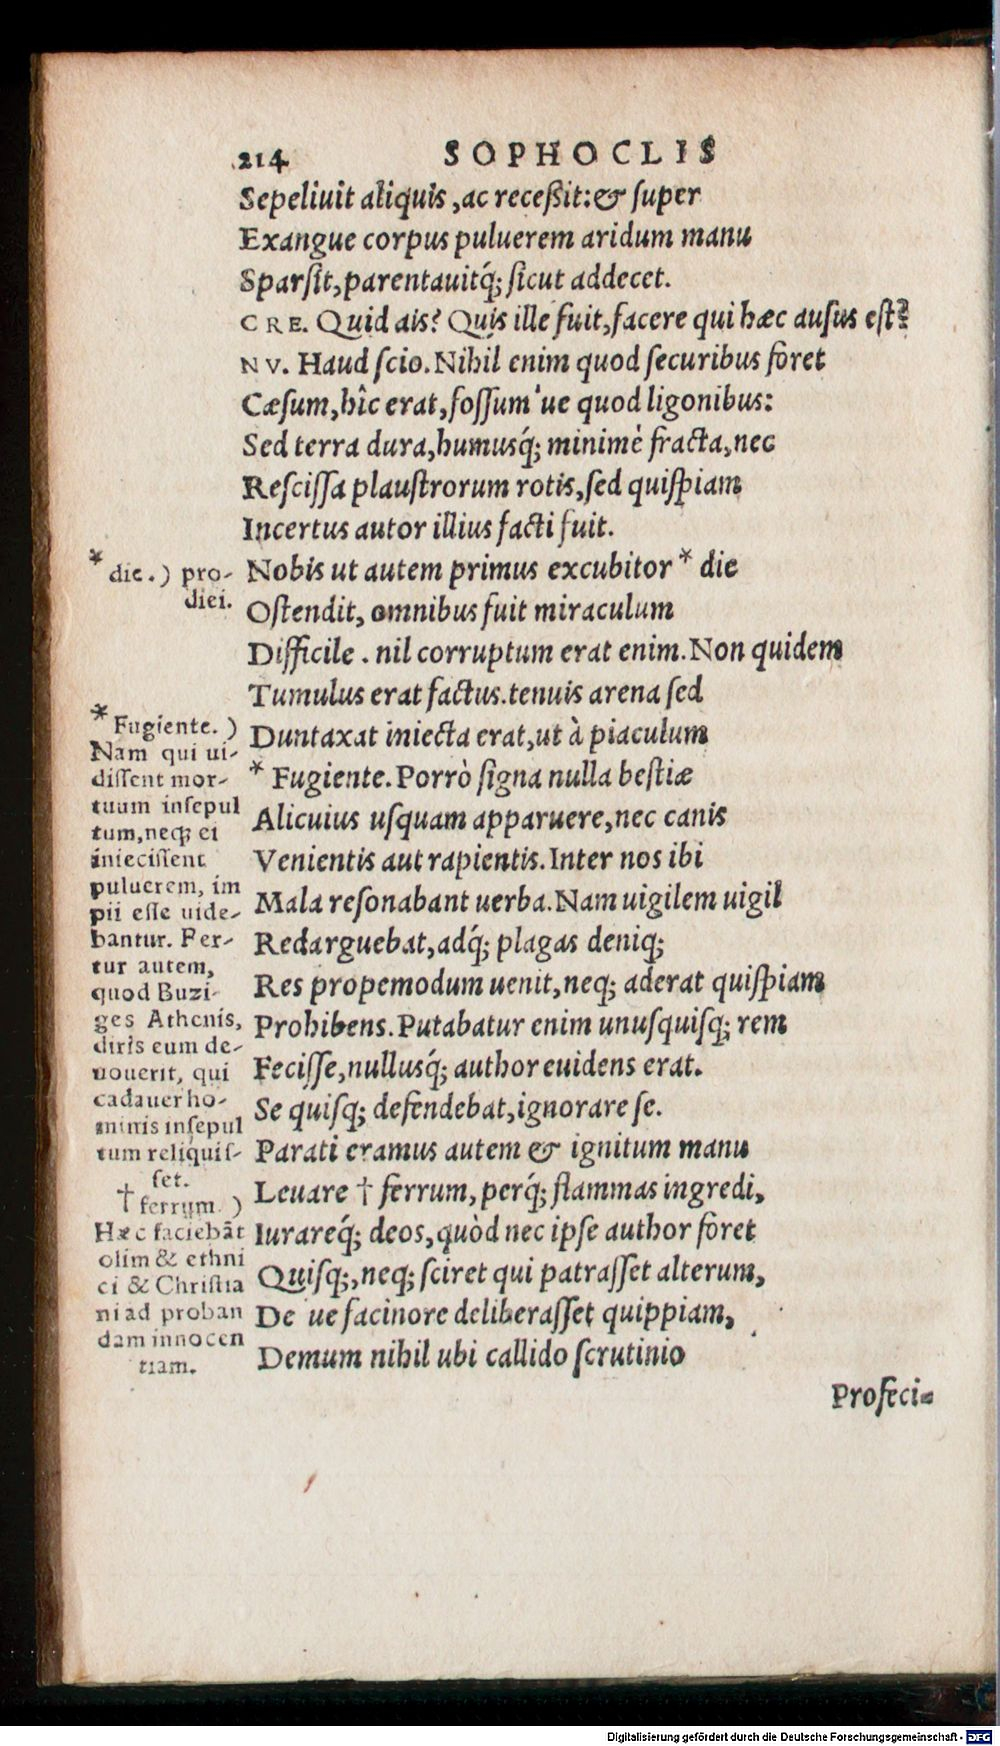 214 SOPHOCLIS
Sepeliuit aliquis, ac receßit: & super
Exangue corpus puluerem aridum manu
Sparsit, parentauitq́; sicut addecet.
CRE. Quid ais? Quis ille fuit, facere qui hæc ausus est?
NV. Haud scio. Nihil enim quod securibus foret
Cæsum, hîc erat, fossum'ue quod ligonibus:
Sed terra dura, humusq́; minimè fracta, nec
Rescissa plaustrorum rotis, sed quispiam
Incertus autor illius facti fuit.
Nobis ut autem primus excubitor * die
Ostendit, omnibus fuit miraculum
Difficile. nil corruptum erat enim. Non quidem
Tumulus erat factus. tenuis arena sed
Duntaxat iniecta erat, ut à piaculum
* Fugiente. Porrò signa nulla bestiæ
Alicuius usquam apparuere, nec canis
Venientis aut rapientis. Inter nos ibi
Mala resonabant uerba. Nam uigilem uigil
Redarguebat, adq́; plagas deniq;
Res propemodum uenit, neq; aderat quispiam
Prohibens. Putabatur enim unusquisq; rem
Fecisse, nullusq́; author euidens erat.
Se quisq; defendebat, ignorare se.
Parati eramus autem & ignitum manu
Leuare † ferrum, perq́; flammas ingredi,
Iurareq́; deos, quòd nec ipse author foret
Quisq;, neq; sciret qui patrasset alterum,
De ue facinore deliberasset quippiam,
Demum nihil ubi callido scrutinio
Profeci-
* die.) pro-
diei.
* Fugiente.)
Nam qui ui-
dissent mor-
tuum insepul
tum, neq; ei
iniecissent
puluerem, im
pii esse uide-
bantur. Fer-
tur autem,
quod Buzi-
ges Athenis,
diris eum de-
uouerit, qui
cadauer ho-
minis insepul
tum reliquis-
set.
† ferrum.)
Hæc faciebāt
olim & ethni
ci & Christia
ni ad proban
dam innocen
tiam.
Digitalisierung gefördert durch die Deutsche Forschungsgemeinschaft - DFG